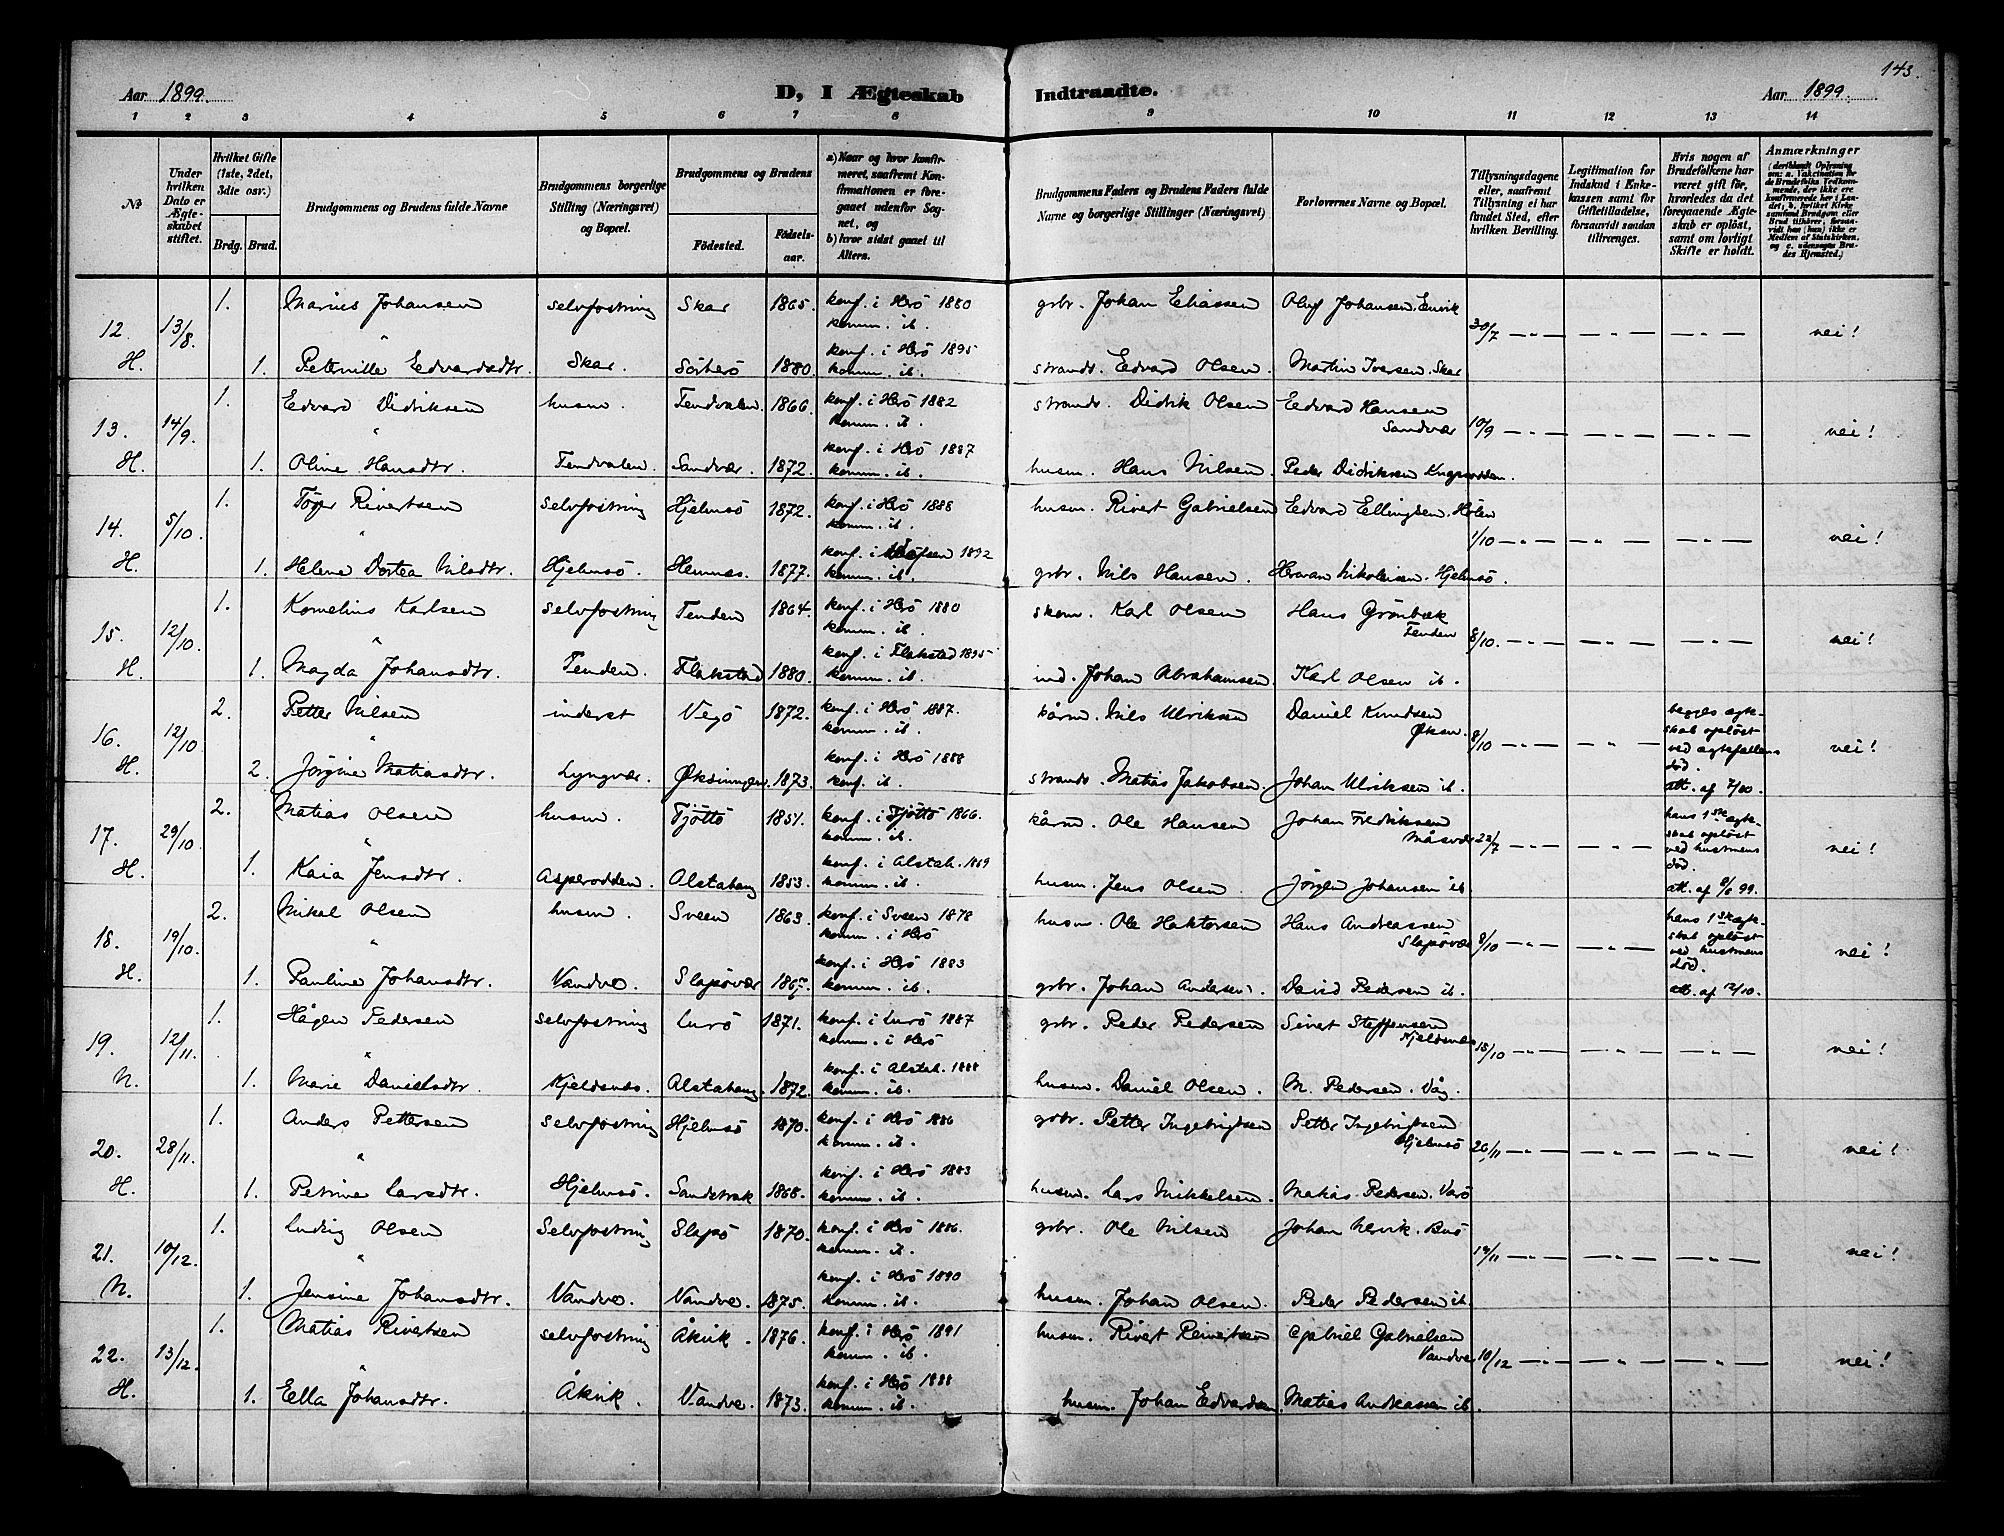 143.
Aar 1899. D, I Ægteskab Indtraadte. Aar 1899.
1 2 3 4 5 6 7 8 9 10 11 12 13 14
No
Under hvilken Dato er Ægteskabet stiftet.
Hvilket Gifte (1ste, 2det, 3die osv.)
Brdg. Brud.
Brudgommens og Brudens fulde Navne
Brudgommens borgerlige Stilling (Næringsvei) og Bopæl.
Brudgommens og Brudens
Födested. Födselsaar.
a) Naar og hvor konfirmeret, saafremt Konfirmationen er foregaaet udenfor Sognet, og
b) hvor sidst gaaet til Alters.
Brudgommens Faders og Brudens Faders fulde Navne og borgerlige Stillinger (Næringsvei)
Forlovernes Navne og Bopæl.
Tillysningsdagene eller, saafremt Tillysning ei har fundet Sted, efter hvilken Bevilling.
Legitimation for Indskud i Enkekassen samt for Giftetilladelse, forsaavidt saadan tiltrænges.
Hvis nogen af Brudefolkene har været gift för, hvorledes da det foregaaende Ægteskab er oplöst, samt om lovligt Skifte er holdt.
Anmærkninger
12. 13/8 1. Marius Johansen selvfostring Skar 1865. konf. i Herö 1880 grbr. Johan Eliassen Oluf Johansen. 30/7 nei!
komm. ib.
H. 1. Peternille Edvardsdtr. Skar. Sörherö 1880. konf. i Herö 1895 strands. Edvard Olsen Martin Iversen. Skar
komm. ib.
13. 14/9. 1. Edvard Didriksen husm. Tendvalen. 1866. konf. i Herö 1882 strands. Didrik Olsen Edvard Hansen Sandvær 10/9 nei!
komm. ib.
H. 1. Oline Hansdtr. Tendvalen. Sandvær. 1872. konf. i Herö 1887 husm. Hans Nilsen. Peder Didriksen
komm. ib.
14. 5/10. 1. Töger Rivertsen selvfostring Hjelmsö 1872. konf. i Herö 1888 husm. Rivert Gabrielsen Edvard Ellingsen. 1/10 nei!
komm. ib.
H. 1. Helene Dortea Nilsdtr. Hjelmsö. Hemnes. 1877. konf. i 1892 grbr. Nils Hansen. Herman Nikolaisen. Hjelmsö.
komm. ib.
15. 12/10. 1. Kornelius Karlsen selvfostring Tenden 1864. konf. i Herö 1880 skom. Karl Olsen Hans Grönbæk Tenden 8/10. nei!
komm. ib.
H. 1. Magda Johansdtr. Tenden. Flakstad 1880. konf. i Flakstad 1895 ind. Johan Abrahamsen Karl Olsen ib.
komm. ib.
16. 12/10 2. Petter Nilsen inderst Vegö 1872. konf. i Herö 1887. kårm. Nils Ulriksen Daniel Knudsen Öksn. 8/10 begges ægteskab oplöst ved ægtefællens död. nei!
komm. ib.
H. 2. Jörgine Matiasdtr. Lyngvær. Öksningen 1873. konf. i Herö 1888 strands. Matias Jakobsen. Johan Ulriksen ib.
konf. ib.
17. 29/10 2. Matias Olsen husm. Tjöttö 1851. konf. i Tjöttö 1866. kårm. Ole Hansen Johan Fredriksen 23/7 hans 1ste ægteskab oplöst ved hustruens död. nei!
komm. ib.
H. 1. Kaia Jensdtr. Asperodden. Alstahaug 1853. konf. i Alstah. 1869 husm. Jens Olsen. Jörgen Johansen ib.
komm. ib.
18. 19/10. 2. Mikal Olsen husm. Sveen 1863 konf. i Sveen 1878 husm. Ole Haktorsen Hans Andreassen Slapövær 8/10 hans 1ste ægteskab oplöst ved hustruens död. nei!
komm. i Herö
H. 1. Pauline Johansdtr. Vandve. Slapövær konf. i Herö 1883 grbr. Johan Andersen. David Pedersen ib.
komm. ib.
19. 12/11. 1. Hågen Pedersen selvfostring Lurö 1871. konf. i Lurö 1887 grbr. Peder Pedersen Sivert Steffensen Kjeldsnes 15/10 nei!
komm. i Herö
N. 1. Marie Danielsdtr. Kjeldsnes. Alstahaug 1872. konf. i Alstah. 1888 husm. Daniel Olsen. M. Pedersen. Våg.
komm. ib.
20. 28/11. 1. Anders Pettersen selvfostring Hjelmsö 1870. konf. i Herö 1886 grbr. Petter Ingebrigtsen Petter Ingebrigtsen Hjelmsö 26/11 nei!
komm. ib.
H. 1. Petrine Larsdtr. Hjelmsö. Sandstrak 1868. konf. i Herö 1883 husm. Lars Mikkelsen. Matias Pedersen.
komm. ib.
21. 10/12. 1. Ludvig Olsen selvfostring Slapö 1870. konf. i Herö 1886. grbr. Ole Nilsen Johan 19/11 nei!
komm. ib.
N. 1. Jensine Johansdtr. Vandve. Vandve. 1875. konf. i Herö 1890 husm. Johan Olsen. Peder Pedersen ib.
komm. ib.
22. 13/12. 1. Matias Rivertsen selvfostring Åkvik. 1876. konf. i Herö 1891 husm. Rivert Reivertsen Gabriel Gabrielsen Vandve 10/12 nei!
komm. ib.
H. 1. Ella Johansdtr. Åkvik. Vandve. 1873. konf. i Herö 1888 husm. Johan Edvardsen. Matias Andreassen ib.
komm. ib.